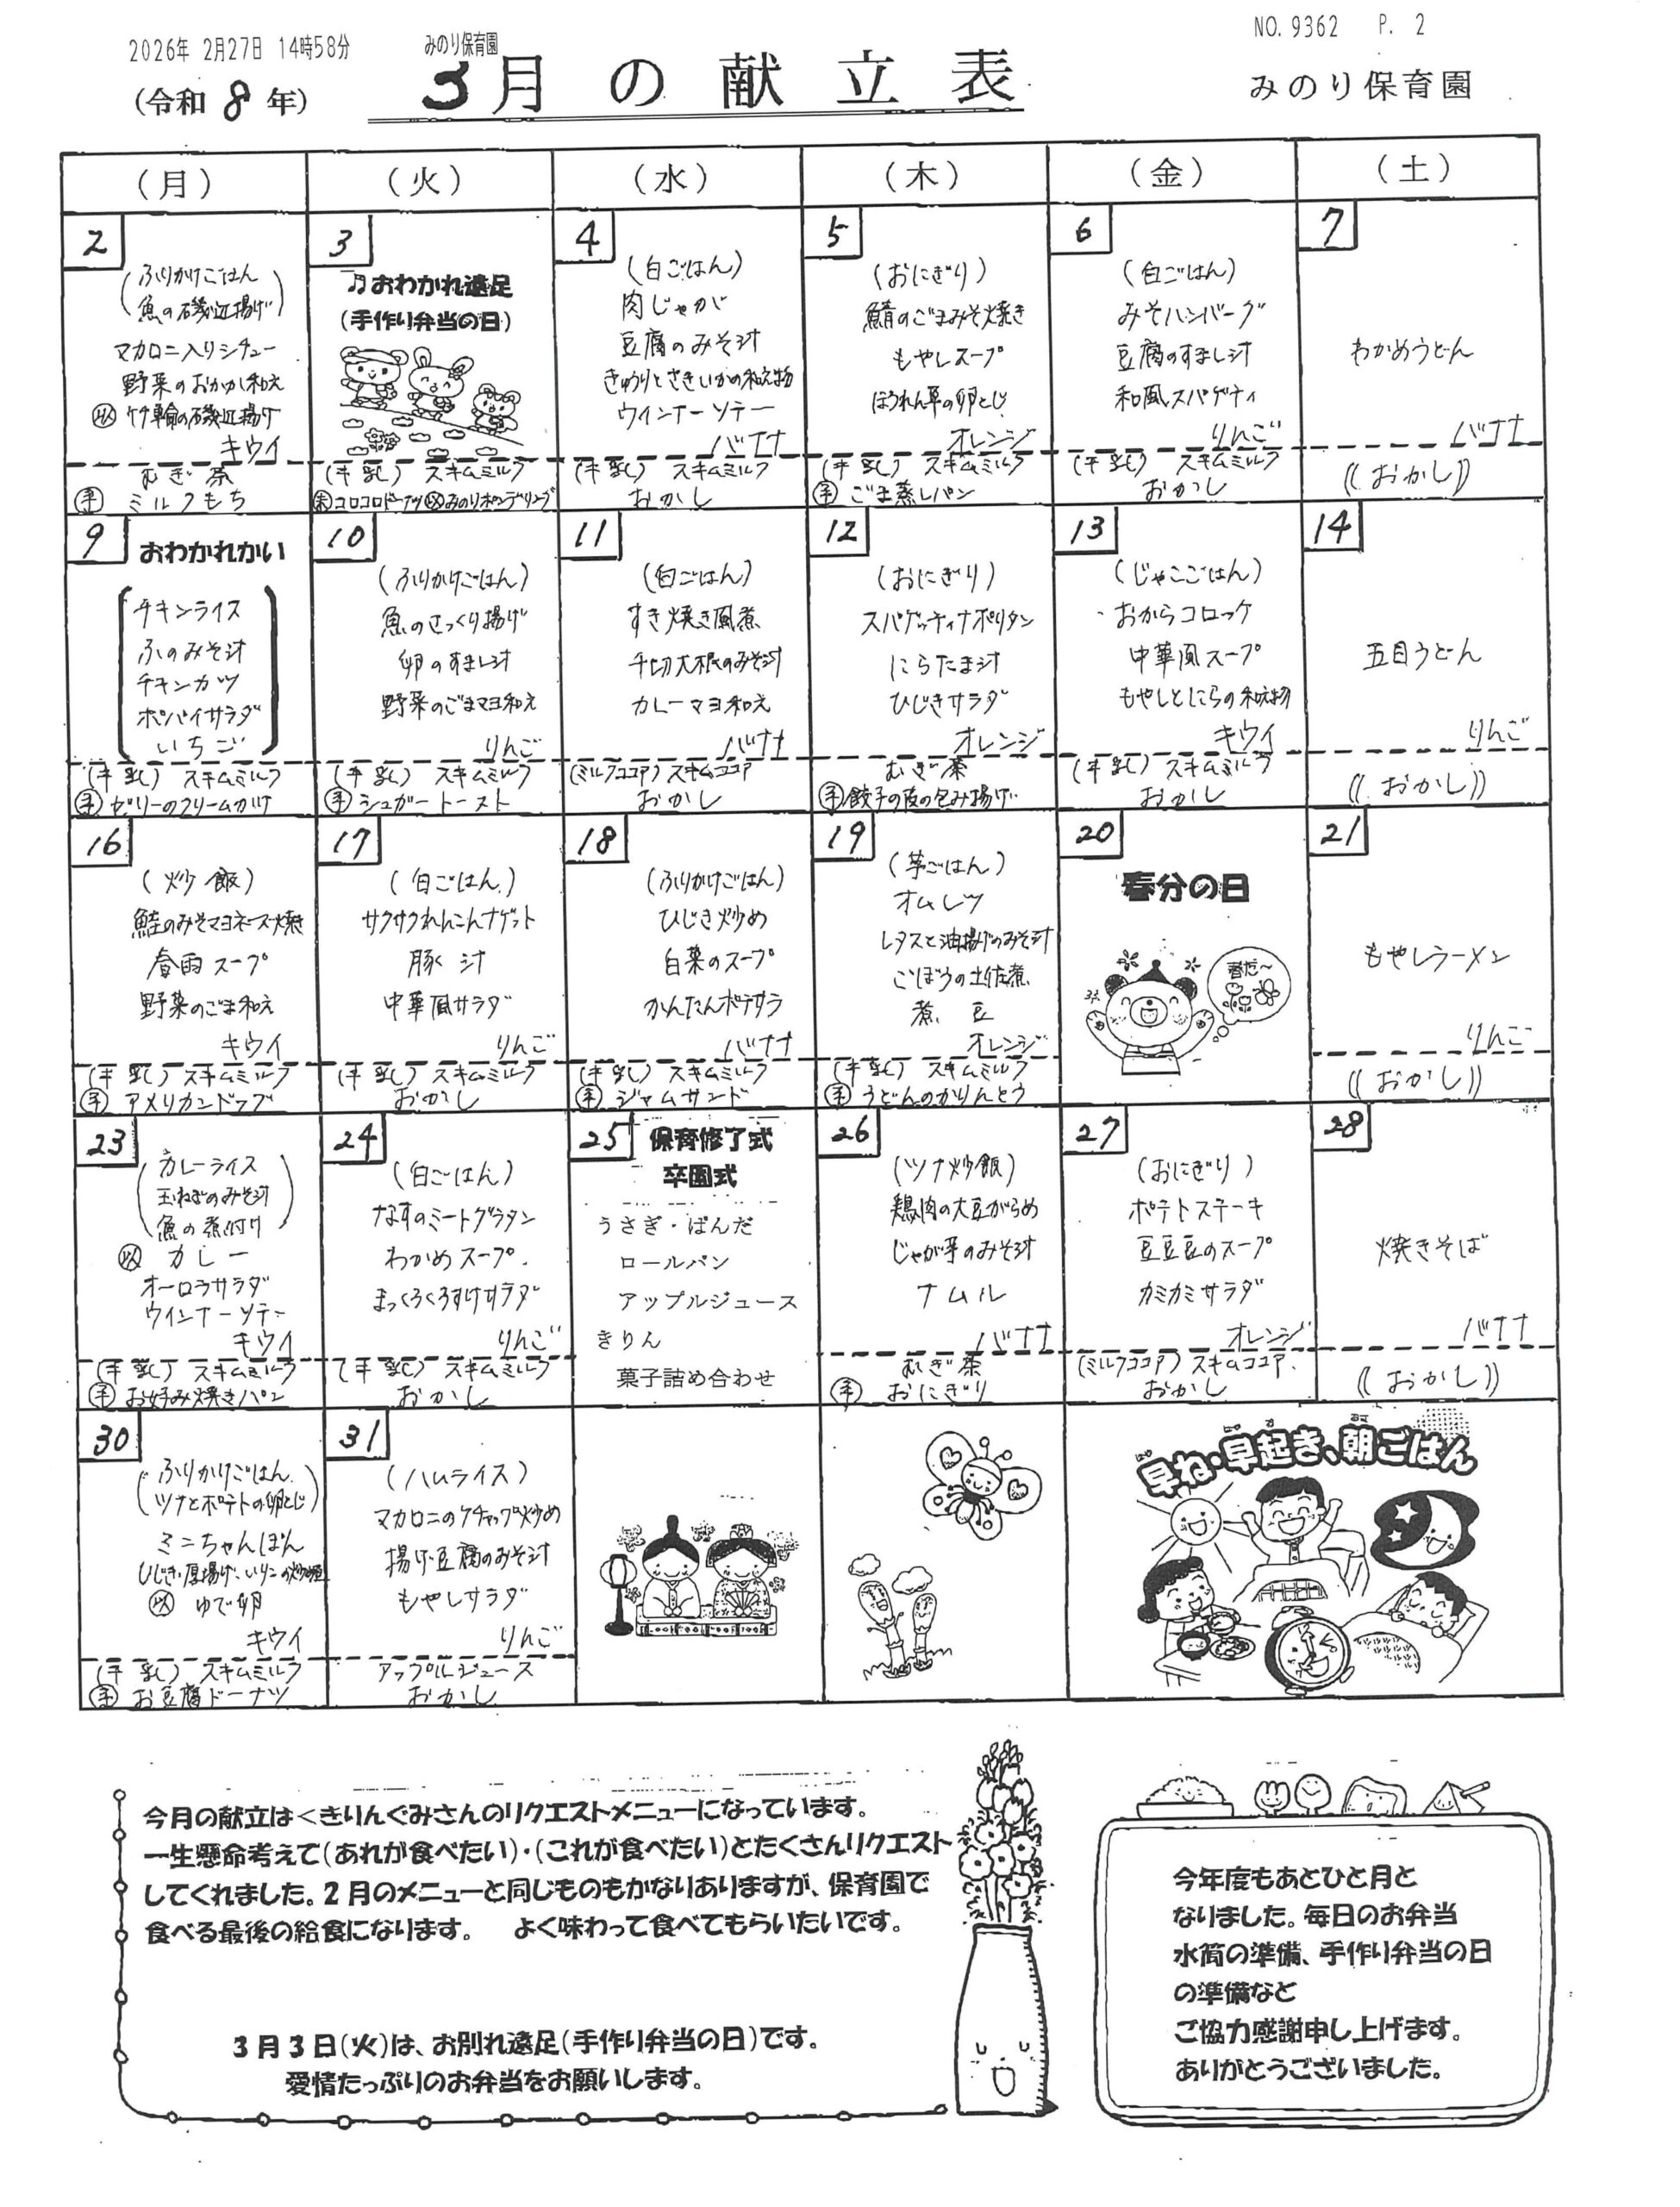 2026年 2月27日 14時58分
みのり保育園
NO.9362 P. 2
(令和 8 年)
3月の献立表
みのり保育園
(月)
(火)
(水)
(木)
(金)
(土)
2
(ふりかけごはん
魚の磯辺揚げ)
マカロニ入りシチュー
野菜のおかか和え
㋩ 竹輪の磯辺揚げ
キウイ
むぎ茶
㋢ ミルクもち
3
♫おわかれ遠足
(手作り弁当の日)
(牛乳) スキムミルク
コロコロドーナツ みのりポンデリング
4
(白ごはん)
肉じゃが
豆腐のみそ汁
きゅうりとさきいかの和え物
ウインナーソテー
バナナ
(牛乳) スキムミルク
おかし
5
(おにぎり)
鯖のごまみそ焼き
もやしスープ
ほうれん草の卵とじ
オレンジ
(牛乳) スキムミルク
手 ごま蒸しパン
6
(白ごはん)
みそハンバーグ
豆腐のすまし汁
和風スパゲティ
りんご
(牛乳) スキムミルク
おかし
7
わかめうどん
バナナ
((おかし))
9
おわかれかい
チキンライス
ふのみそ汁
チキンカツ
ポパイサラダ
いちご
(牛乳) スキムミルク
手 ゼリーのクリームかけ
10
(ふりかけごはん)
魚のさっくり揚げ
卵のすまし汁
野菜のごまマヨ和え
りんご
(牛乳) スキムミルク
手 シュガートースト
11
(白ごはん)
すき焼き風煮
千切大根のみそ汁
カレーマヨ和え
バナナ
(ミルクココア) スキムココア
おかし
12
(おにぎり)
スパゲッティナポリタン
にらたま汁
ひじきサラダ
オレンジ
むぎ茶
手 餃子の皮の包み揚げ
13
(じゃこごはん)
おからコロッケ
中華風スープ
もやしとにらの和え物
キウイ
(牛乳) スキムミルク
おかし
14
五目うどん
りんご
((おかし))
16
(炒飯)
鮭のみそマヨネーズ焼き
春雨スープ
野菜のごま和え
キウイ
(牛乳) スキムミルク
手 アメリカンドッグ
17
(白ごはん)
サクサクれんこんナゲット
豚汁
中華風サラダ
りんご
(牛乳) スキムミルク
おかし
18
(ふりかけごはん)
ひじき炒め
白菜のスープ
かんたんポテサラ
バナナ
(牛乳) スキムミルク
手 ジャムサンド
19
(芋ごはん)
オムレツ
レタスと油揚げのみそ汁
ごぼうの土佐煮
煮豆
オレンジ
(牛乳) スキムミルク
手 うどんのかりんとう
20
春分の日
春だ～
21
もやしラーメン
りんご
((おかし))
23
(カレーライス
玉ねぎのみそ汁
魚の煮付け)
カレー
オーロラサラダ
ウインナーソテー
キウイ
(牛乳) スキムミルク
手 お好み焼きパン
24
(白ごはん)
なすのミートグラタン
わかめスープ
まっくろくろすけサラダ
りんご
(牛乳) スキムミルク
おかし
25
保育修了式
卒園式
うさぎ・ぱんだ
ロールパン
アップルジュース
きりん
菓子詰め合わせ
26
(ツナ炒飯)
鶏肉の大豆がらめ
じゃが芋のみそ汁
ナムル
バナナ
むぎ茶
手 おにぎり
27
(おにぎり)
ポテトステーキ
豆豆豆のスープ
カミカミサラダ
オレンジ
(ミルクココア) スキムココア
おかし
28
焼きそば
バナナ
((おかし))
30
(ふりかけごはん
ツナとポテトの卵とじ)
ミニちゃんぽん
ひじき・厚揚げ・いりこの炒め煮
ゆで卵
キウイ
(牛乳) スキムミルク
手 お豆腐ドーナツ
31
(ハムライス)
マカロニのケチャップ炒め
揚げ豆腐のみそ汁
もやしサラダ
りんご
アップルジュース
おかし
早ね・早起き、朝ごはん
今月の献立は＜きりんぐみさんのリクエストメニューになっています。
一生懸命考えて(あれが食べたい)・(これが食べたい)とたくさんリクエスト
してくれました。2月のメニューと同じものもかなりありますが、保育園で
食べる最後の給食になります。 よく味わって食べてもらいたいです。
3月3日(火)は、お別れ遠足(手作り弁当の日)です。
愛情たっぷりのお弁当をお願いします。
今年度もあとひと月と
なりました。毎日のお弁当
水筒の準備、手作り弁当の日
の準備など
ご協力感謝申し上げます。
ありがとうございました。